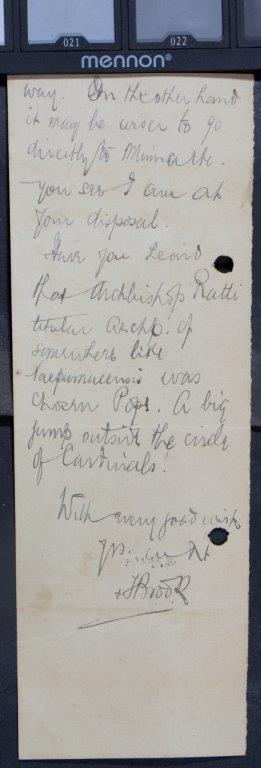 021 022
mennon®
way. On the other hand
it may be wiser to go
directly to
You see I am at
your disposal.
Have you heard
that Archbishop Ratti
titular Archb. of
somewhere like
was
chosen Pope. A big
jump outside the circle
of Cardinals!
With every good wish
Yrs.